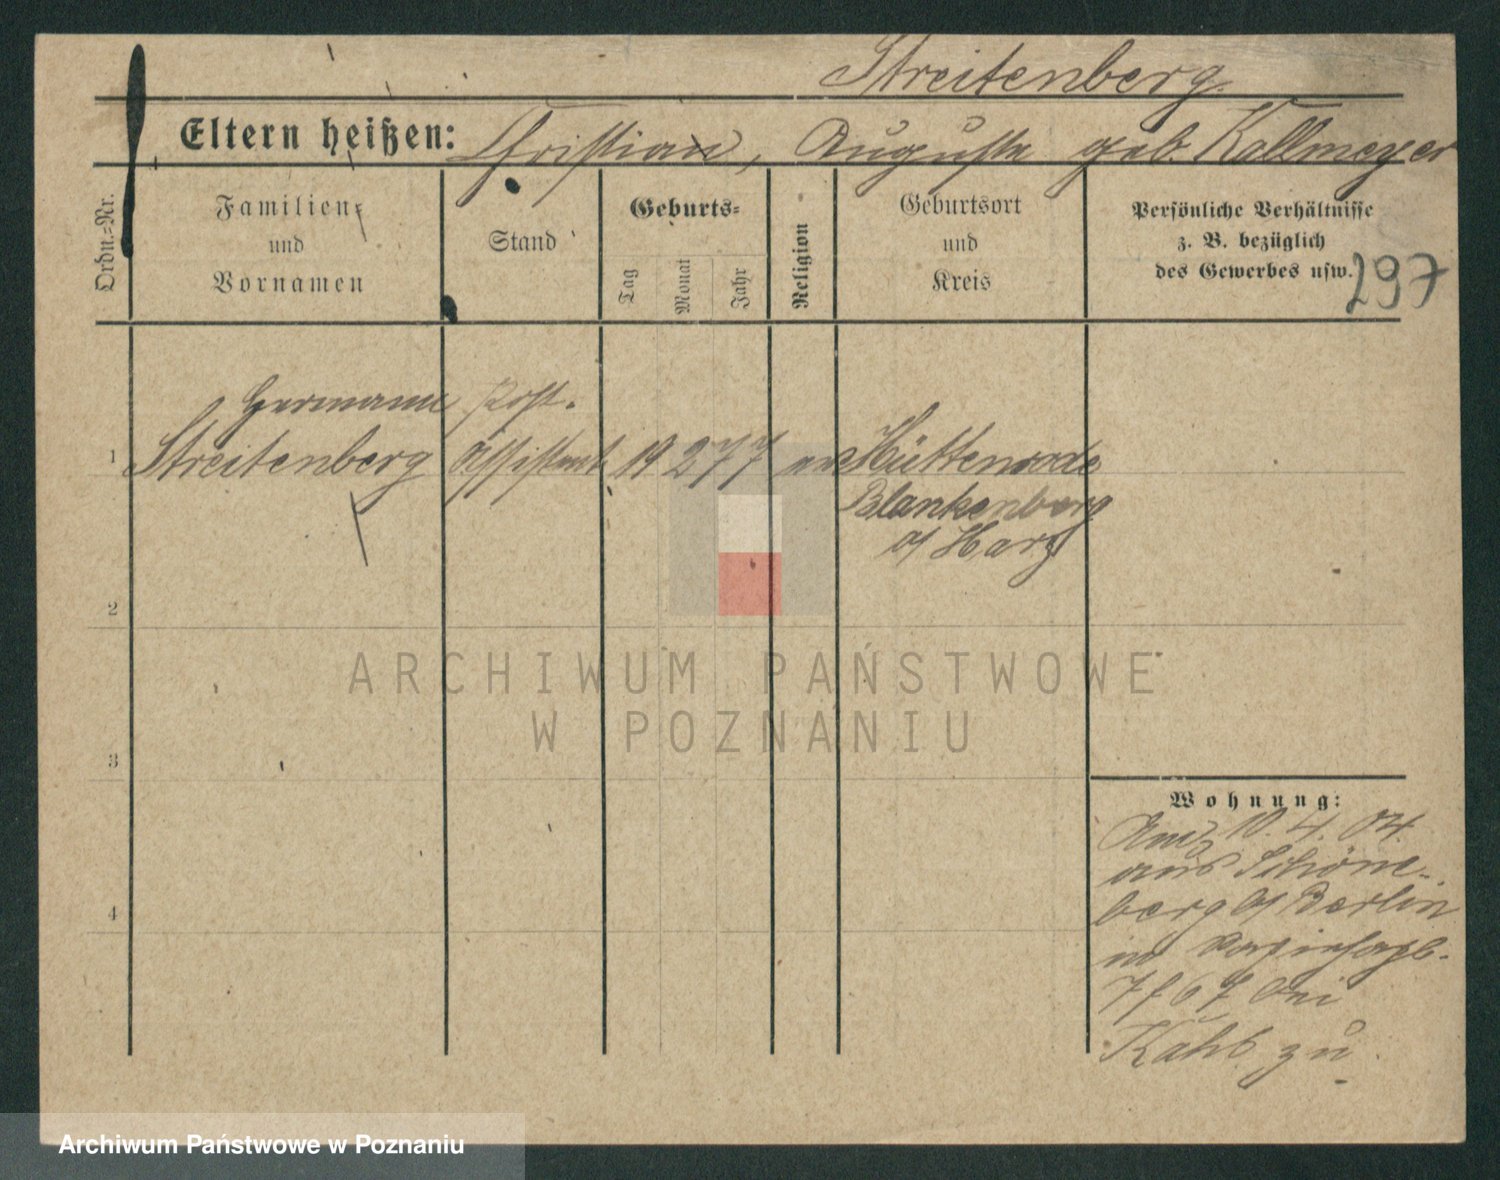 Streitenberg.
Eltern heißen: Christian, Auguste geb. Kallmeyer
Ordn.-Nr.
Familien-
und
Vornamen
Stand
Geburts-
Tag
Monat
Jahr
Religion
Geburtsort
und
Kreis
Persönliche Verhältnisse
z. B. bezüglich
des Gewerbes usw.
297
Hermann Post-
1 Streitenberg Assistent 19 2 77 ev Hüttenrode
Blankenberg
a/ Harz
2
3
4
Wohnung:
10. 4. 04.
aus Schöne-
berg b/ Berlin
in
bei
zu
ARCHIWUM PAŃSTWOWE
W POZNANIU
Archiwum Państwowe w Poznaniu